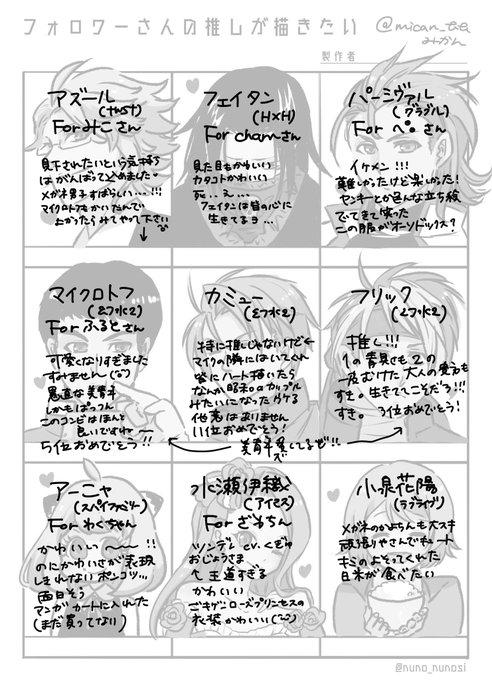 フォロワーさんの推しが描きたい
@mican_
みかん
製作者
アズール
(twst)
Forみこさん
見下されたいという気持ち
はがんばって込めました。
メガネ男子すばらしい…!!!
マイクロトフもかいたんで
よかったらみてやって下さい
フェイタン
(H×H)
For chamさん
見た目もかわいい
カタコトかわいい
死…え…
フェイタンは皆の心に
生きてるヨ…
パーシヴァル
(グラブル)
For ぺ。さん
イケメン!!!
難しかったけど楽しかった!
ヤンキーとか色んな立ち絵
でてきて笑った
この服がオーソドックス?
マイクロトフ
(幻水2)
For ふるとさん
可愛くなりすぎました
すみません
愚直な美青年
しかもぱっつん
このコンビはほんと
良いですね〜
5位おめでとう!!
カミュー
(幻水2)
特に推しじゃないけど
マイクの隣にはいてくれ
皆にハート描いたら
なんか昭和のカップル
みたいになったウケる
他意はありません
11位おめでとう!
美青年推してるぜ!!
フリック
(幻水2)
推し!!!
1の青臭さも2の
一皮むけた大人の魅力も
すき。生きててこそだろ!!!
すき。3位おめでとう!
アーニャ
(スパイファミリー)
For わくちゃん
かわいい〜〜!!
のにかわいさが表現
しきれないポンコツ…
面白そう
マンガカートに入れた
(まだ買ってない)
水瀬伊織
(アイマス)
For ざわちん
ツンデレ cv.くぎゅ
おじょうさま
王道すぎる
かわいい
ごキゲンローズプリンセスの
衣装かわいい
小泉花陽
(ラブライブ)
メガネのかよちんも大スキ
頑張りやさんでキュート
キミのよそってくれた
白米が食べたい
@nuno_nunosi